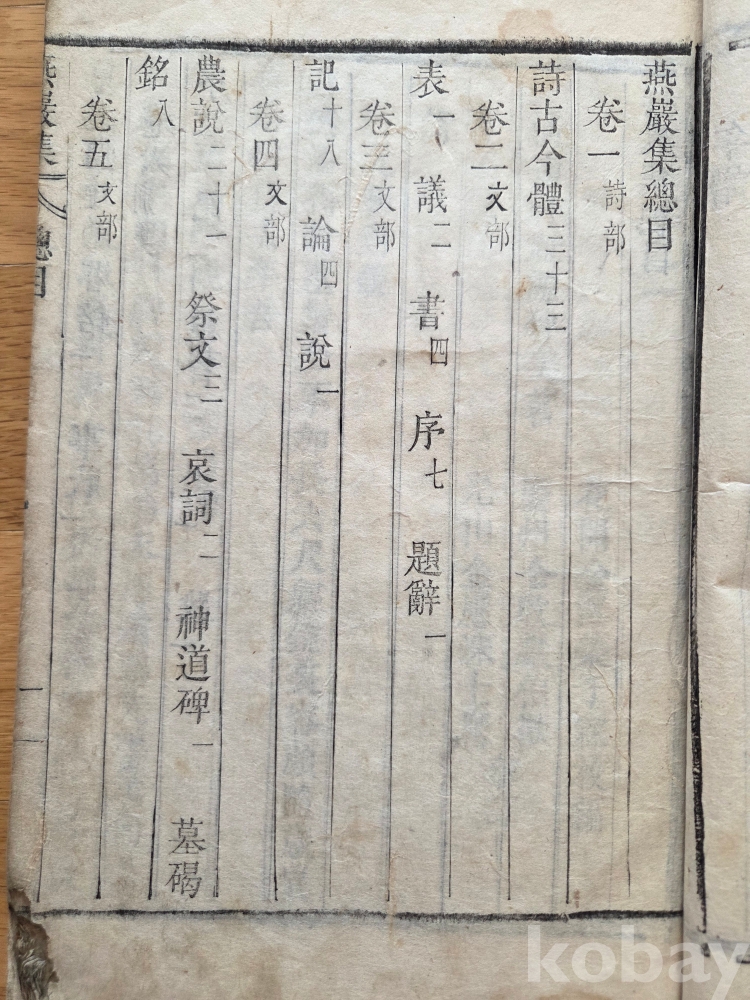 燕巖集總目
卷一 詩部
詩古今體 三十三
卷二 文部
表 一 議 二 書 四 序 七 題辭 一
卷三 文部
記 十八 論 四 說 一
卷四 文部
農說 二十一 祭文 三 哀詞 二 神道碑 一 墓碣
銘 八
卷五 文部
燕巖集 總目 一
kobay